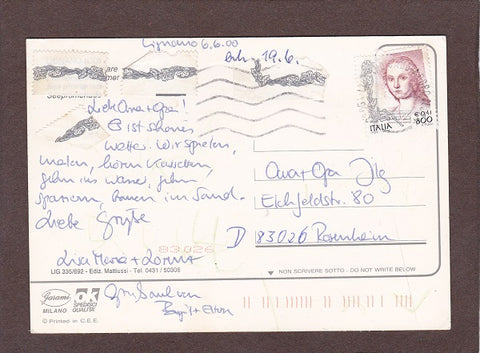 Lignano 6.6.00
erh. 19.6.
are
mer
Seepromenade
Liebe Oma + Opa!
Es ist schönes
Wetter. Wir spielen,
malen, hören Kassetten,
gehn ins Wasser, gehn
spazieren, bauen im Sand.
Liebe Grüße
Lisa Maria +
ITALIA
€ 0,41
800
Oma + Opa Jlg
Eichfeldstr. 80
D 83026 Rosenheim
83026
LIG 335/692 - Ediz. Mattiussi - Tel. 0431 / 50306
NON SCRIVERE SOTTO - DO NOT WRITE BELOW
Garami
MILANO
OK
SPEDISCI
QUALITA'
© Printed in C.E.E.